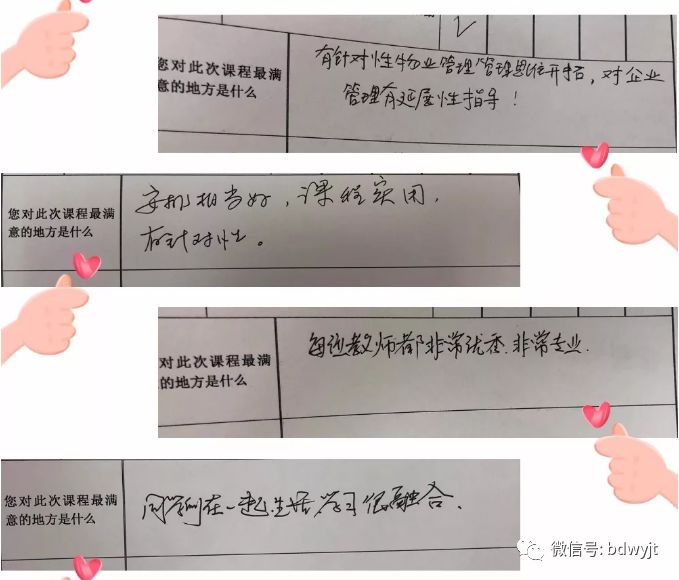 您对此次课程最满
意的地方是什么
有针对性物业管理管理思维开拓，对企业
管理有延展性指导！
您对此次课程最满
意的地方是什么
安排相当好，课程实用，
有针对性。
对此次课程最满
的地方是什么
每位教师都非常优秀.非常专业.
您对此次课程最满
意的地方是什么
同学们在一起生活.学习很融合.
微信号: bdwyjt